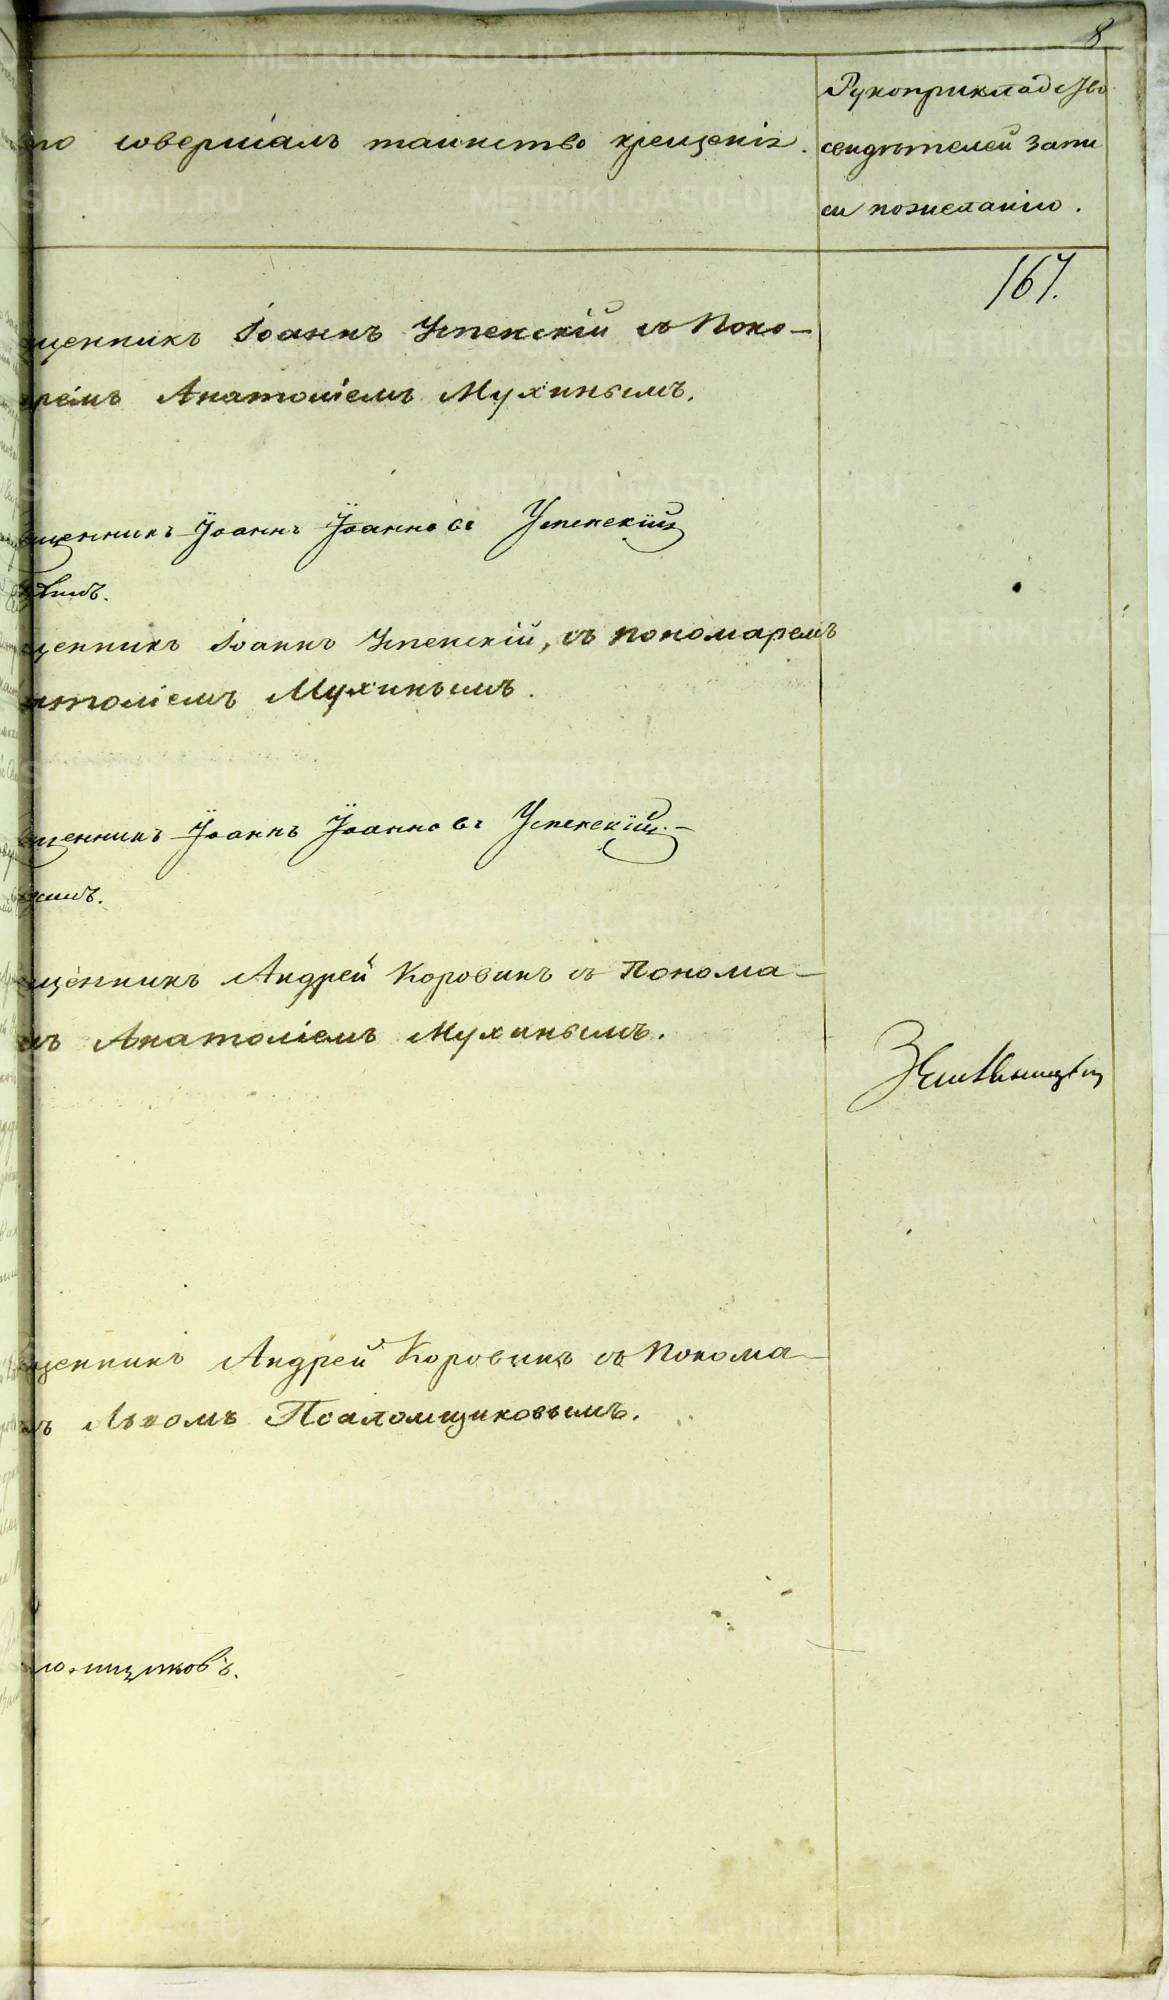 8
то совершалъ таинство крещенія.
Рукоприкладство
свидѣтелей запи
си пожеланію.
167.
щенникъ Іоаннъ Успенскій съ Поно-
ремъ Анатоліемъ Мухинымъ.
щенникъ Іоаннъ Іоанновъ Успенскій
щенникъ Іоаннъ Успенскій, съ пономаремъ
толіемъ Мухинымъ.
щенникъ Іоаннъ Іоанновъ Успенскій.-
щенникъ Андрей Коровинъ съ Понома-
ъ Анатоліемъ Мухинымъ.
щенникъ Андрей Коровинъ съ Понома-
ъ Львомъ Псаломщиковымъ.
ломщиковъ.
METRIKI.GASO-URAL.RU